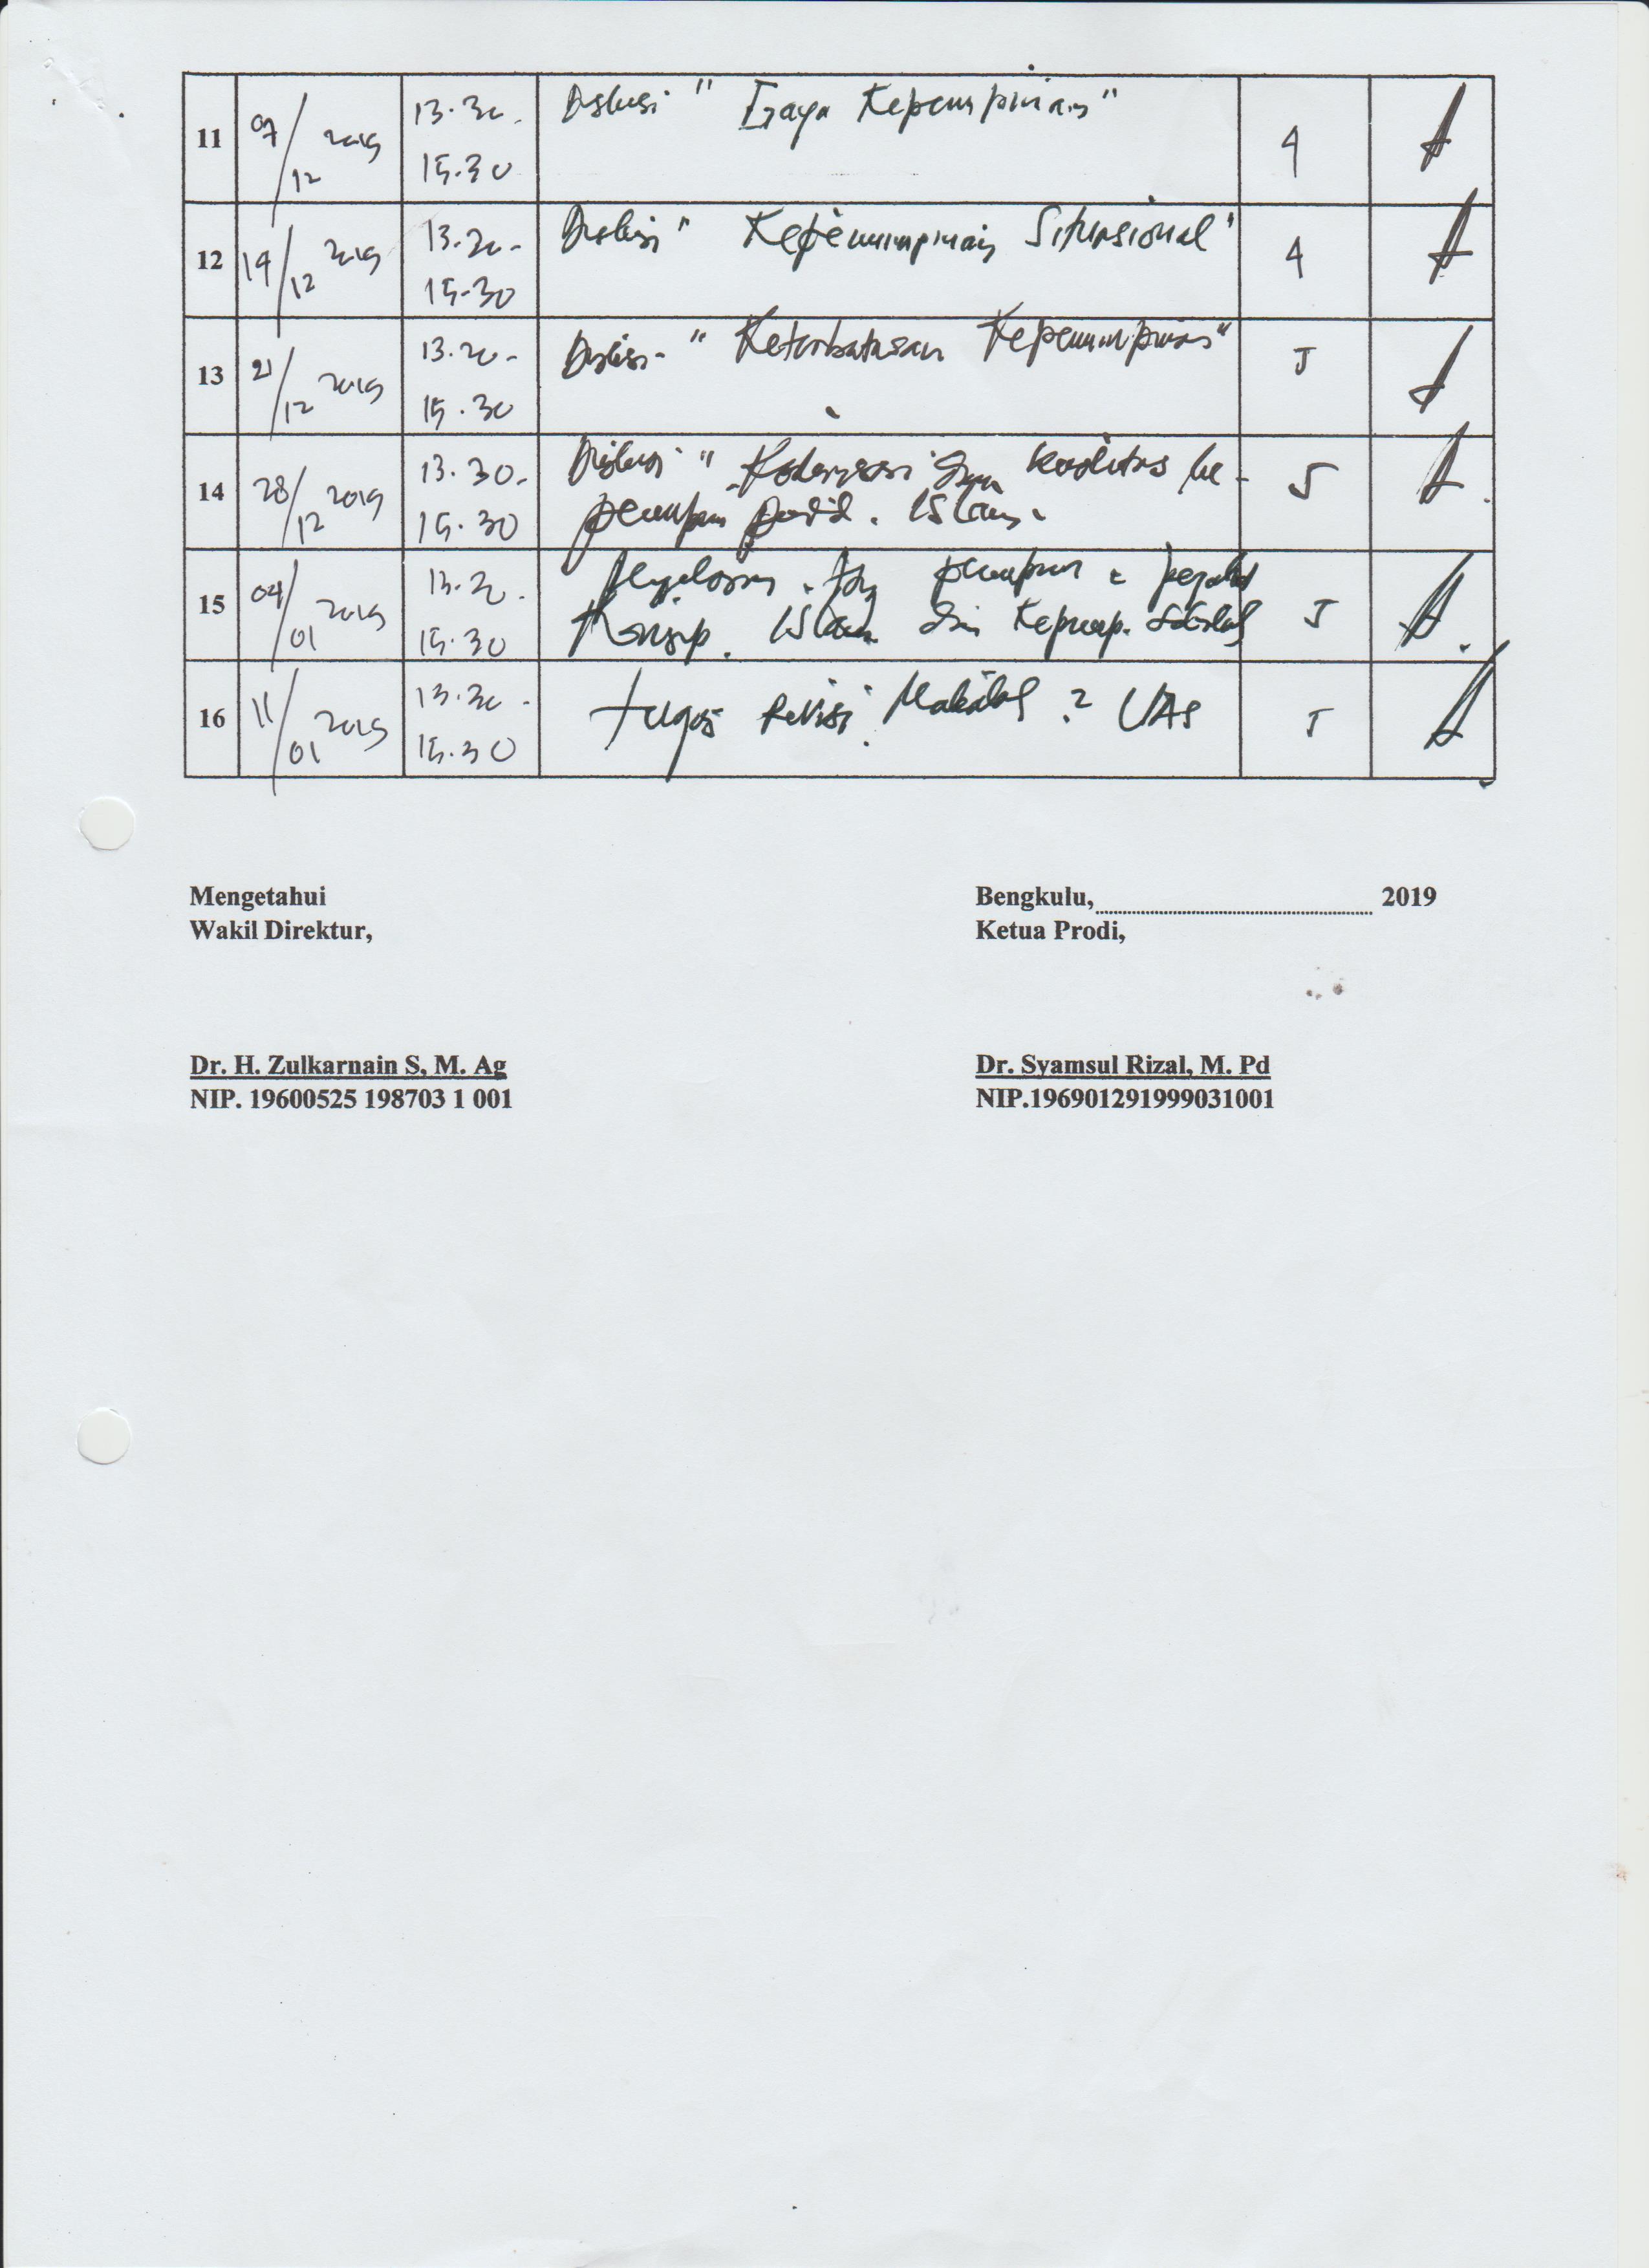 11 07/12 2019 13.30- Diskusi " Gaya Kepemimpinan" 4
15.30
12 14/12 2019 13.30- Diskusi " Kepemimpinan Situasional" 4
15.30
13 21/12 2019 13.30- Diskusi " Keterbatasan Kepemimpinan" 5
15.30
14 28/12 2019 13.30- Diskusi " kualitas ke- 5
15.30 pemimpin Islam.
15 04/01 2019 13.30- pemimpin 5
15.30 Konsep Islam
16 11/01 2019 13.30- tugas Revisi Makalah UAS 5
15.30
Mengetahui
Wakil Direktur,
Bengkulu, 2019
Ketua Prodi,
Dr. H. Zulkarnain S, M. Ag
NIP. 19600525 198703 1 001
Dr. Syamsul Rizal, M. Pd
NIP.196901291999031001